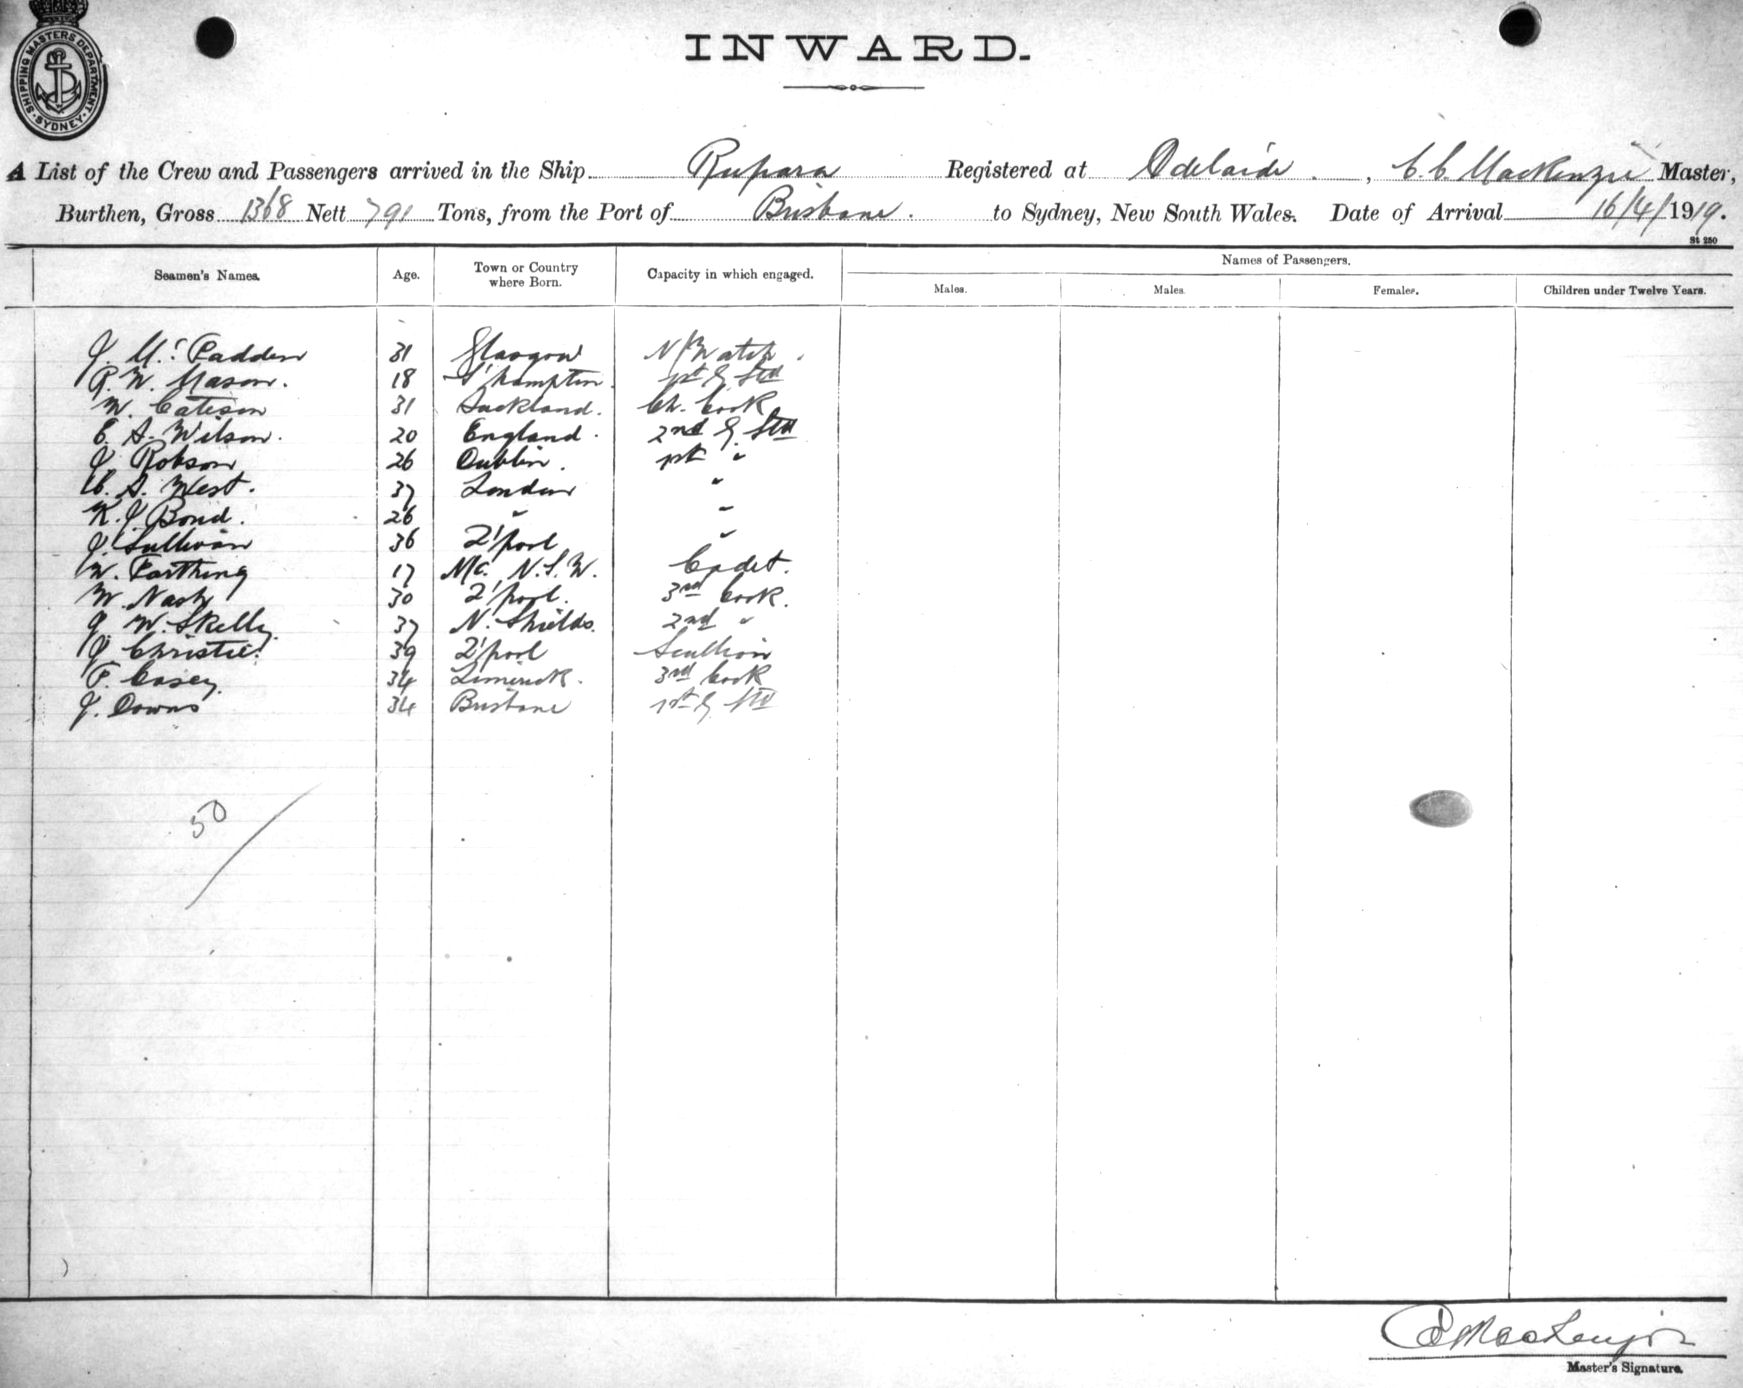 SHIPPING MASTERS DEPARTMENT. SYDNEY.
INWARD.
A List of the Crew and Passengers arrived in the Ship Rupara Registered at Adelaide, C. C. MacKenzie Master,
Burthen, Gross 1368 Nett 791 Tons, from the Port of Brisbane. to Sydney, New South Wales. Date of Arrival 16/4/1919.
St 250
Seamen's Names. Age. Town or Country where Born. Capacity in which engaged. Names of Passengers.
Males. Males. Females. Children under Twelve Years.
J. McFadden 31 Glasgow N/Watch.
R. W. Mason. 18 S'hampton. 1st G. Std
W. Cateson 31 Auckland. Ch. Cook
C. A. Wilson. 20 England. 2nd G. Std
J. Robson 26 Dublin. 1st "
C. A. West. 37 London "
K. J. Bond. 26 " "
J. Sullivan 36 L'pool "
W. Farthing 17 N.S.W. Cadet.
W. Nash 30 L'pool. 3rd Cook.
J. W. Skelly. 37 N. Shields. 2nd "
J. Christie. 39 L'pool Scullion
P. Casey. 34 Limerick. 3rd Cook
J. Downs 34 Brisbane 1st G. Std
50
MacKenzie
Master's Signature.